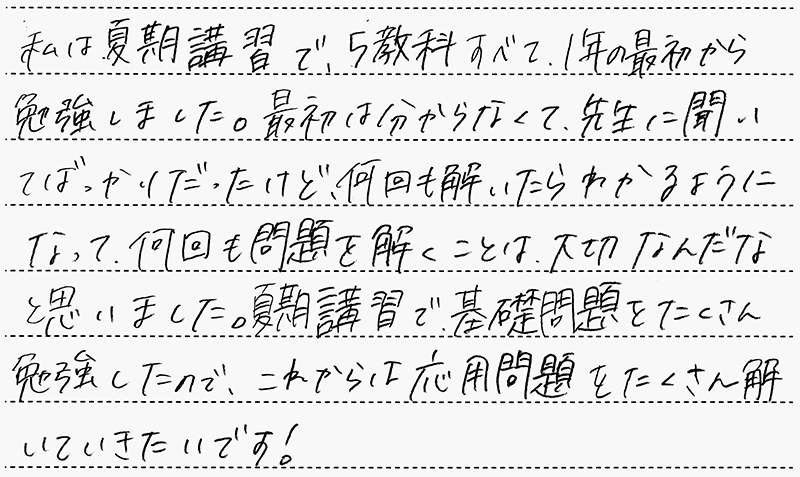 私は夏期講習で、5教科すべて、1年の最初から
勉強しました。最初は分からなくて、先生に聞い
てばっかりだったけど、何回も解いたらわかるように
なって、何回も問題を解くことは、大切なんだな
と思いました。夏期講習で、基礎問題をたくさん
勉強したので、これからは応用問題をたくさん解
いていきたいです!